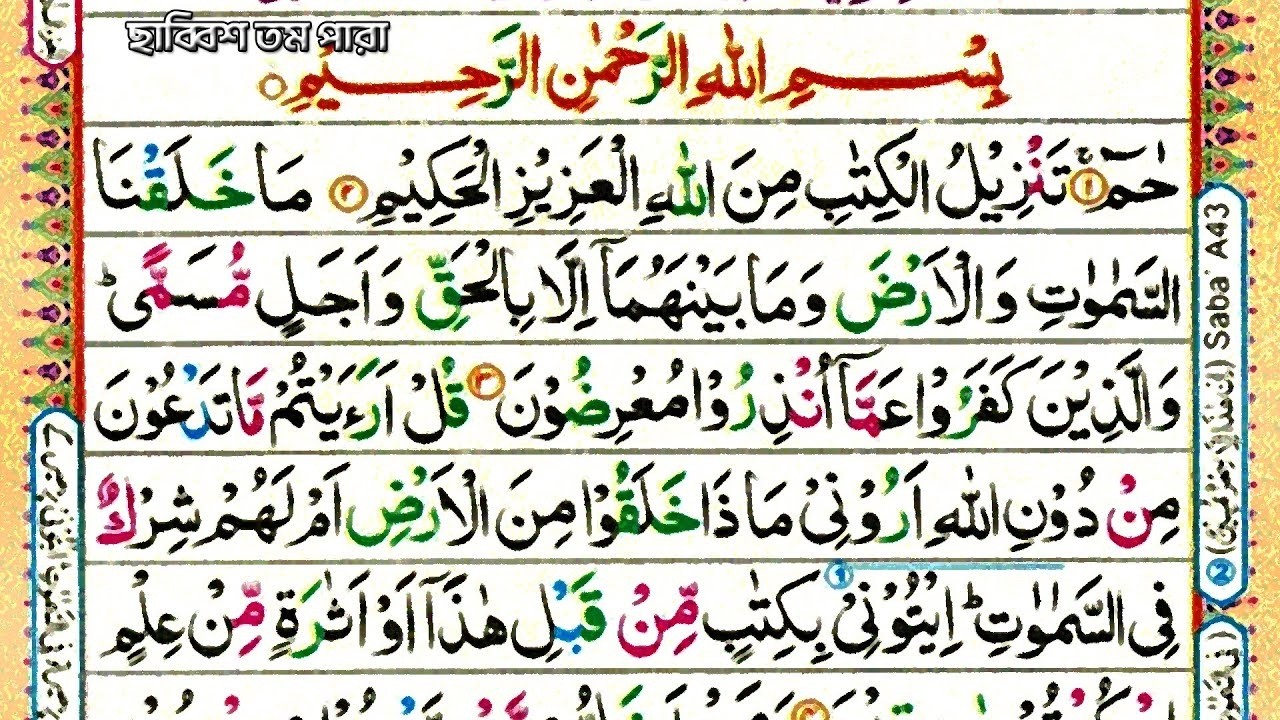 ছাব্বিশ তম পারা
بِسْمِ اللّٰهِ الرَّحْمٰنِ الرَّحِیْمِ
حٰمٓ ۚ۝۱ تَنْزِیْلُ الْكِتٰبِ مِنَ اللّٰهِ الْعَزِیْزِ الْحَكِیْمِ ۝۲ مَا خَلَقْنَا
السَّمٰوٰتِ وَ الْاَرْضَ وَ مَا بَیْنَهُمَاۤ اِلَّا بِالْحَقِّ وَ اَجَلٍ مُّسَمًّی ؕ
وَ الَّذِیْنَ كَفَرُوْا عَمَّاۤ اُنْذِرُوْا مُعْرِضُوْنَ ۝۳ قُلْ اَرَءَیْتُمْ مَّا تَدْعُوْنَ
مِنْ دُوْنِ اللّٰهِ اَرُوْنِیْ مَا ذَا خَلَقُوْا مِنَ الْاَرْضِ اَمْ لَهُمْ شِرْكٌ
فِی السَّمٰوٰتِ ؕ اِیْتُوْنِیْ بِكِتٰبٍ مِّنْ قَبْلِ هٰذَاۤ اَوْ اَثٰرَةٍ مِّنْ عِلْمٍ
Saba' A43